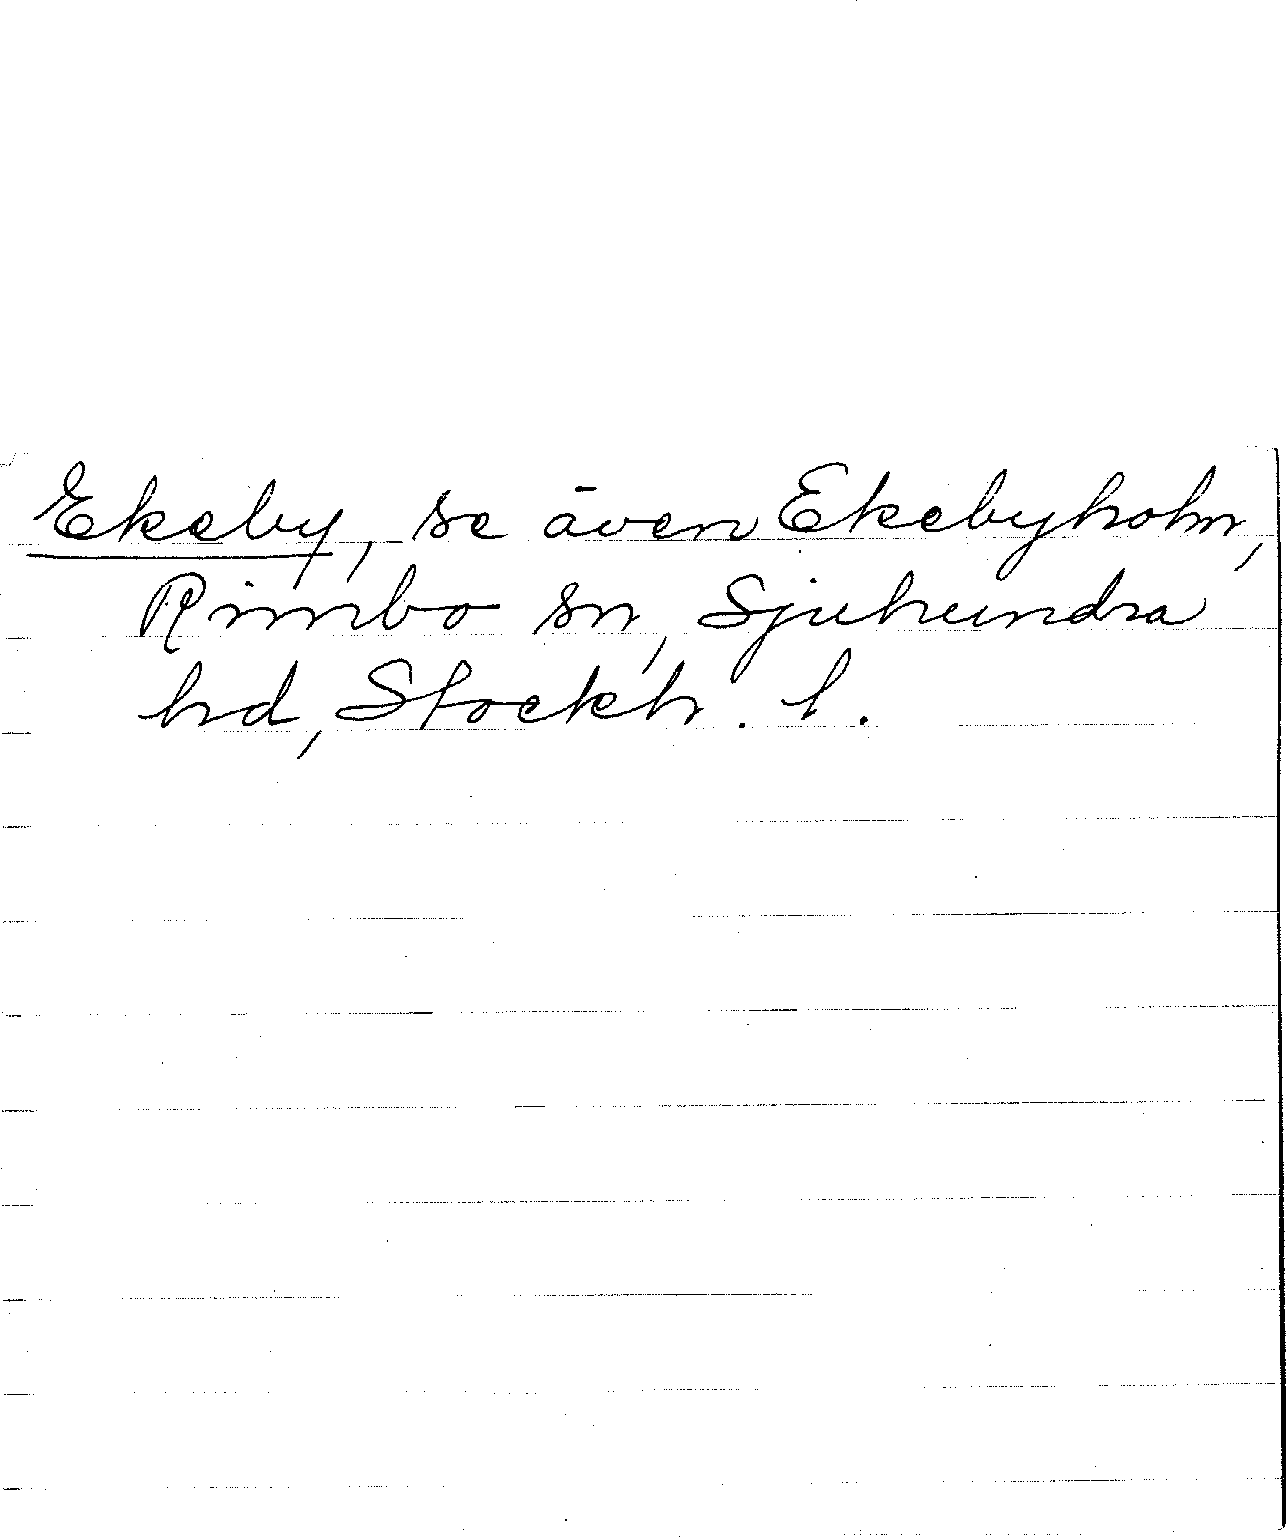 Ekeby, se även Ekebyholm,
Rimbo sn, Sjuhundra
hd, Stockh. l.